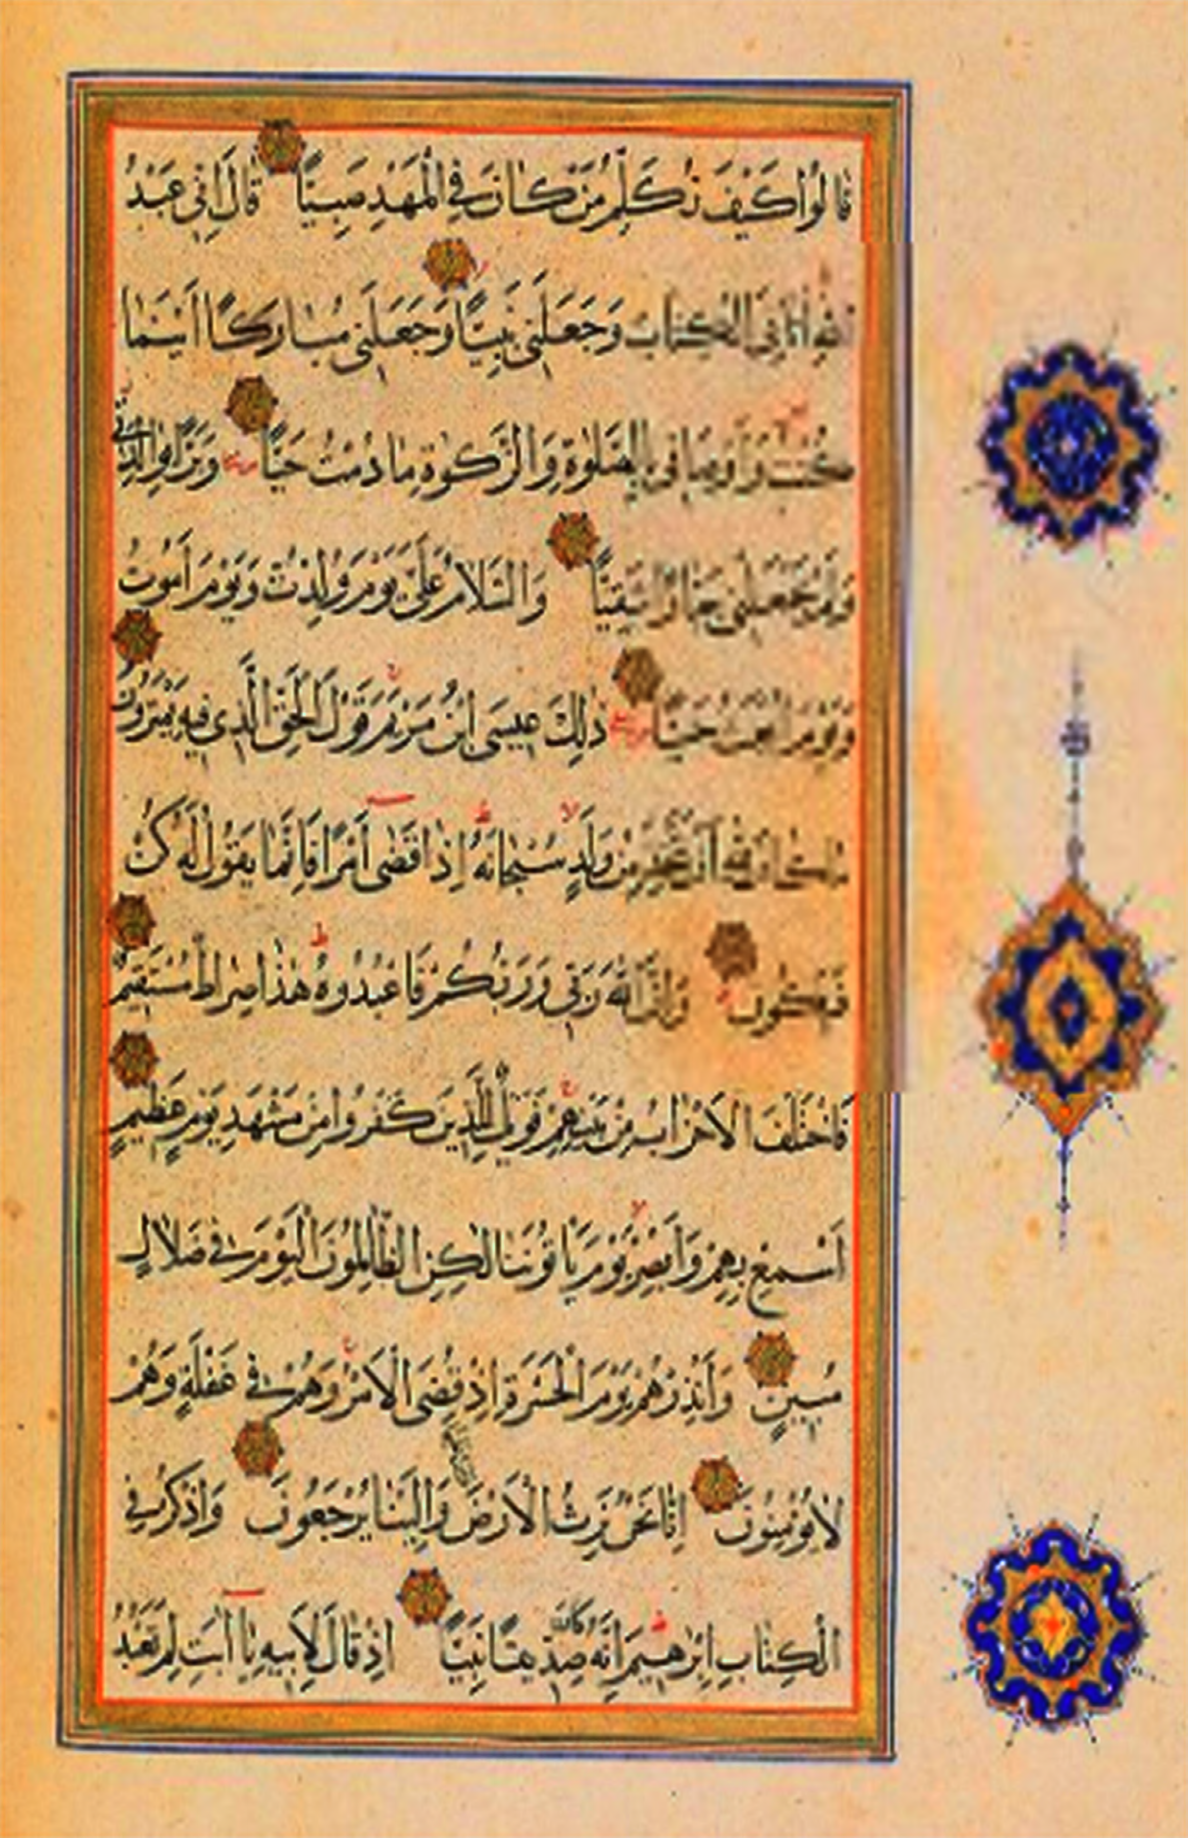 قَالُوا كَيْفَ نُكَلِّمُ مَنْ كَانَ فِي الْمَهْدِ صَبِيًّا قَالَ إِنِّي عَبْدُ
اللَّهِ آتَانِيَ الْكِتَابَ وَجَعَلَنِي نَبِيًّا وَجَعَلَنِي مُبَارَكًا أَيْنَمَا
كُنْتُ وَأَوْصَانِي بِالصَّلَوٰةِ وَالزَّكَوٰةِ مَا دُمْتُ حَيًّا وَبَرًّا بِوَالِدَتِي
وَلَمْ يَجْعَلْنِي جَبَّارًا شَقِيًّا وَالسَّلَامُ عَلَيَّ يَوْمَ وُلِدْتُ وَيَوْمَ أَمُوتُ
وَيَوْمَ أُبْعَثُ حَيًّا ذَلِكَ عِيسَى ابْنُ مَرْيَمَ قَوْلَ الْحَقِّ الَّذِي فِيهِ يَمْتَرُونَ
مَا كَانَ لِلَّهِ أَنْ يَتَّخِذَ مِنْ وَلَدٍ سُبْحَانَهُ إِذَا قَضَى أَمْرًا فَإِنَّمَا يَقُولُ لَهُ كُنْ
فَيَكُونُ وَإِنَّ اللَّهَ رَبِّي وَرَبُّكُمْ فَاعْبُدُوهُ هٰذَا صِرَاطٌ مُسْتَقِيمٌ
فَاخْتَلَفَ الْأَحْزَابُ مِنْ بَيْنِهِمْ فَوَيْلٌ لِلَّذِينَ كَفَرُوا مِنْ مَشْهَدِ يَوْمٍ عَظِيمٍ
أَسْمِعْ بِهِمْ وَأَبْصِرْ يَوْمَ يَأْتُونَنَا لٰكِنِ الظَّالِمُونَ الْيَوْمَ فِي ضَلَالٍ
مُبِينٍ وَأَنْذِرْهُمْ يَوْمَ الْحَسْرَةِ إِذْ قُضِيَ الْأَمْرُ وَهُمْ فِي غَفْلَةٍ وَهُمْ
لَا يُؤْمِنُونَ إِنَّا نَحْنُ نَرِثُ الْأَرْضَ وَمَنْ عَلَيْهَا وَإِلَيْنَا يُرْجَعُونَ وَاذْكُرْ فِي
الْكِتَابِ إِبْرٰهِيمَ إِنَّهُ كَانَ صِدِّيقًا نَبِيًّا إِذْ قَالَ لِأَبِيهِ يَا أَبَتِ لِمَ تَعْبُدُ